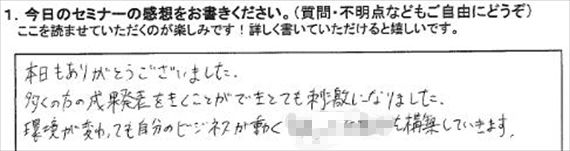 1. 今日のセミナーの感想をお書きください。(質問・不明点などもご自由にどうぞ)
ここを読ませていただくのが楽しみです！詳しく書いていただけると嬉しいです。
本日もありがとうございました.
多くの方の成果発表をきくことができとても刺激になりました.
環境が変わっても自分のビジネスが動く も構築していきます.